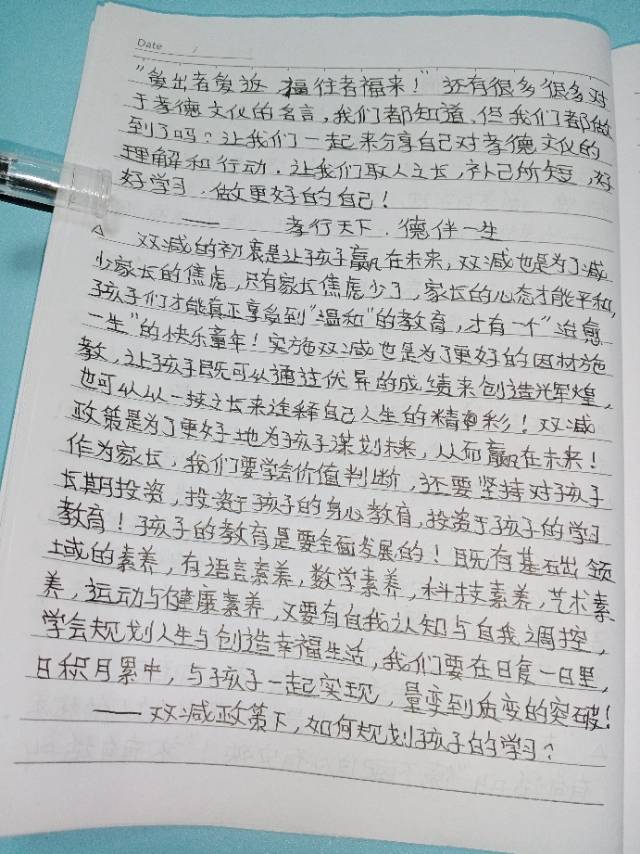 Date
“爱出者爱返，福往者福来！”还有很多很多对
于孝德文化的名言，我们都知道，但我们都做
到了吗？让我们一起来分享自己对孝德文化的
理解和行动．让我们取人之长，补己所短，好
好学习．做更好的自己！
—— 孝行天下．德伴一生
△ 双减的初衷是让孩子赢在未来，双减也是为了减
少家长的焦虑，只有家长焦虑少了，家长的心态才能平和，
孩子们才能真正享受到“温和”的教育，才有一个“治愈
一生”的快乐童年！实施双减也是为了更好的因材施
教，让孩子既可以通过优异的成绩来创造光辉煌，
也可以以一技之长来诠释自己人生的精彩！双减
政策是为了更好地为孩子谋划未来，从而赢在未来！
作为家长，我们要学会价值判断，还要坚持对孩子
长期投资，投资于孩子的身心教育，投资于孩子的学习
教育！孩子的教育是要全面发展的！既有基础领
域的素养，有语言素养，数学素养，科技素养，艺术素
养，运动与健康素养，又要有自我认知与自我调控，
学会规划人生与创造幸福生活，我们要在日复一日里，
日积月累中，与孩子一起实现，量变到质变的突破！
—— 双减政策下，如何规划孩子的学习？